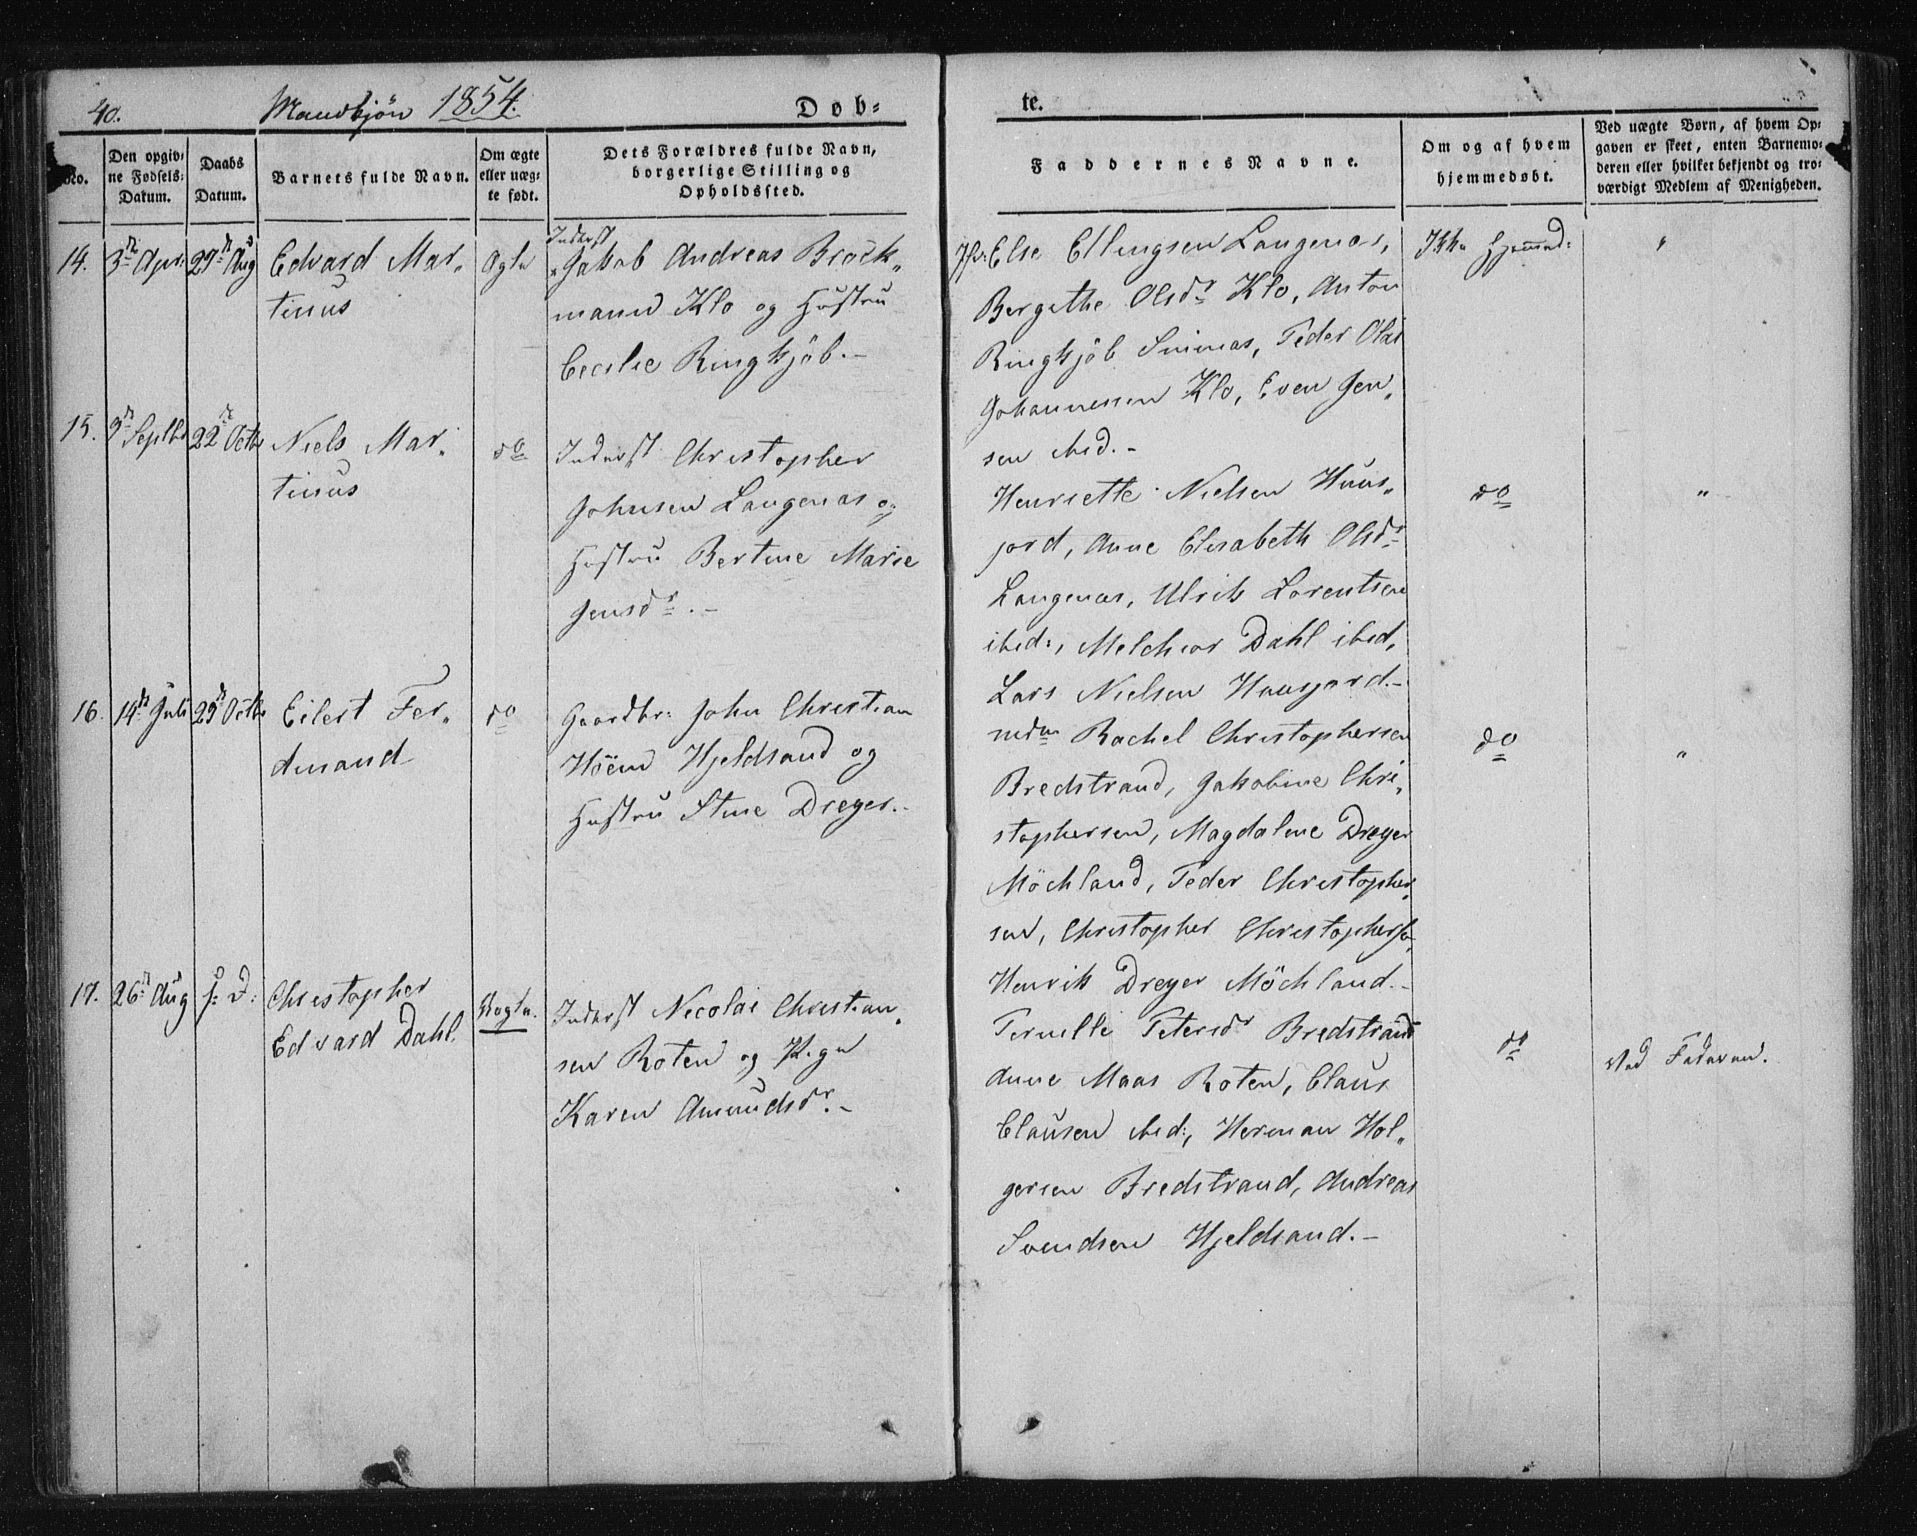 40. Mandkjön 1854. Døb-
te.
No.
Den opgiv-
ne Fødsels-
Datum.
Daabs
Datum.
Barnets fulde Navn.
Om ægte
eller uæg-
te født.
Dets Forældres fulde Navn,
borgerlige Stilling og
Opholdssted.
Faddernes Navne.
Om og af hvem
hjemmedøbt.
Ved uægte Børn, af hvem Op-
gaven er skeet, enten Barnemo-
deren eller hvilket bekjendt og tro-
værdigt Medlem af Menigheden.
14. 3die Apr: 29de Aug Edvard Mar-
tinus
Ægte
Inderst
Jakob Andreas Brock-
mann Klo og Hustru
Cecilie Ringkjöb.-
Else Ellingsen Langenæs,
Bergethe Olsdr Klo, Anton
Ringkjöb Sminæs, Peder Olai
Johannessen Klo, Even Jen-
sen ibid.-
Ikke Hjemmed:
"
15. 9de Septbr 22de Octbr Niels Mar-
tinus
do
Inderst Christopher
Johnsen Langenæs og
Hustru Bertine Marie
Jensdr.-
Henriette Nielsen Huus-
jord, Anne Elisabeth Olsdr
Langenæs, Ulrik Lorentsen
ibid:, Melchior Dahl ibid,
Lars Nielsen Huusjord.-
do
"
16. 14de Juli 29de Octbr Eilert Fer-
dinand
do
Gaardbr: John Christian
Höen Hjeldsand og
Hustru Stine Dreyer.-
mdm Rachel Christophersen
Bredstrand, Jakobine Chri-
stophersen, Magdalene Dreyer
Möchland, Peder Christopher-
sen, Christopher Christophersen,
Henrik Dreyer Möchland.-
do
"
17. 26de Aug s: D: Christopher
Edvard Dahl.
Uægte.
Inderst Nicolai Christian-
sen Roten og Pige
Karen Amundsdr.-
Pernille Petersdr Bredstrand
Anne Maas Roten, Claus
Clausen ibid:, Herman Hol-
gersen Bredstrand, Andreas
Svendsen Hjeldsand.-
do
Ved Faderen.